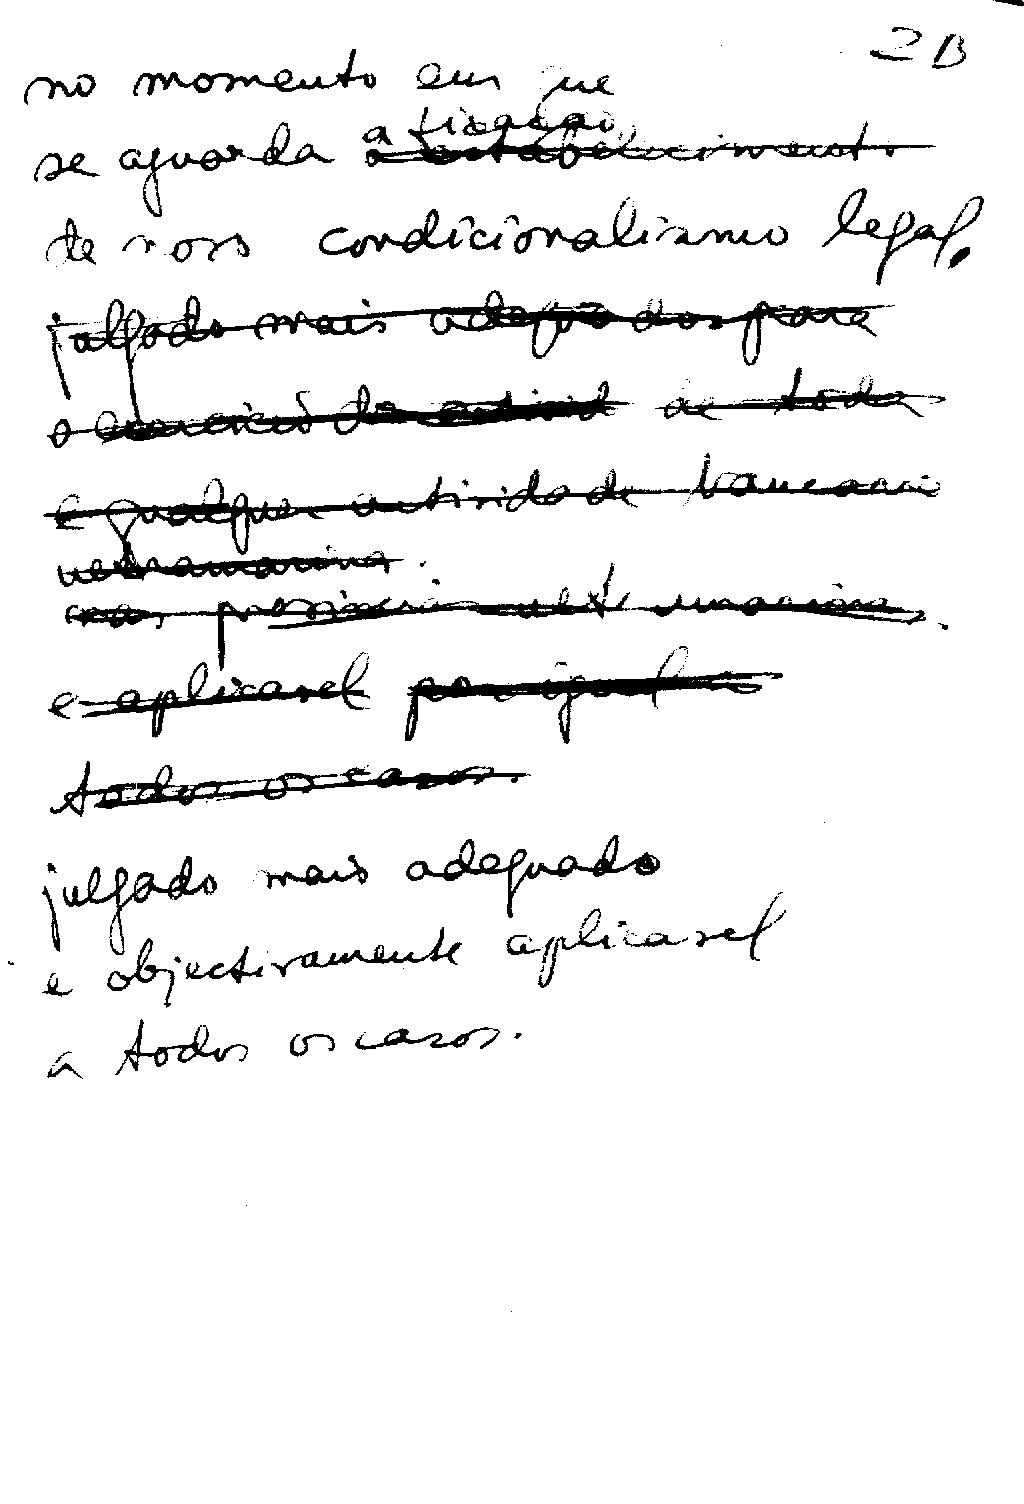 2B
no momento em que
a fixação
se aguarda o estabelecimento
de novo condicionalismo legal,
julgado mais adequado para
o exercicio da activid de toda
e qualquer actividade bancaria
ultramarina.
nas provincias ultramarinas.
e aplicavel por igual a
todos os casos.
julgado mais adequado
e objectivamente aplicavel
a todos os casos.